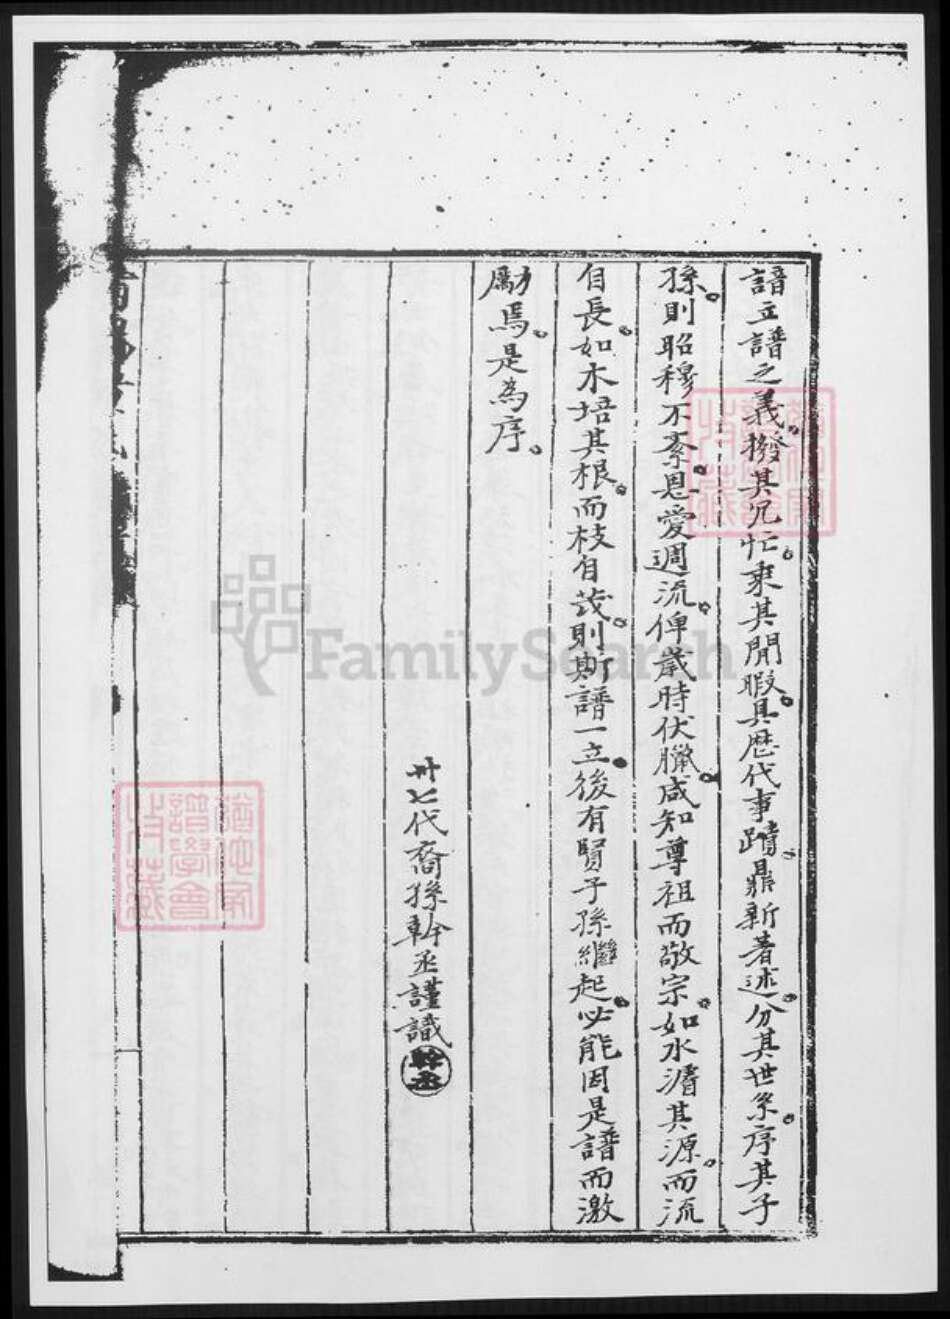 諳立譜之義。撥其冗忙。乘其閒暇。具歷代事蹟。鼎新著述。分其世系。序其子
孫。則昭穆不紊。恩愛週流。俾歲時伏臘。咸知尊祖而敬宗。如水濬其源。而流
自長。如木培其根。而枝自茂。則斯譜一立。後有賢子孫繼起。必能因是譜而激
勵焉。是為序。
卅七代裔孫幹丞謹識
幹丞
FamilySearch